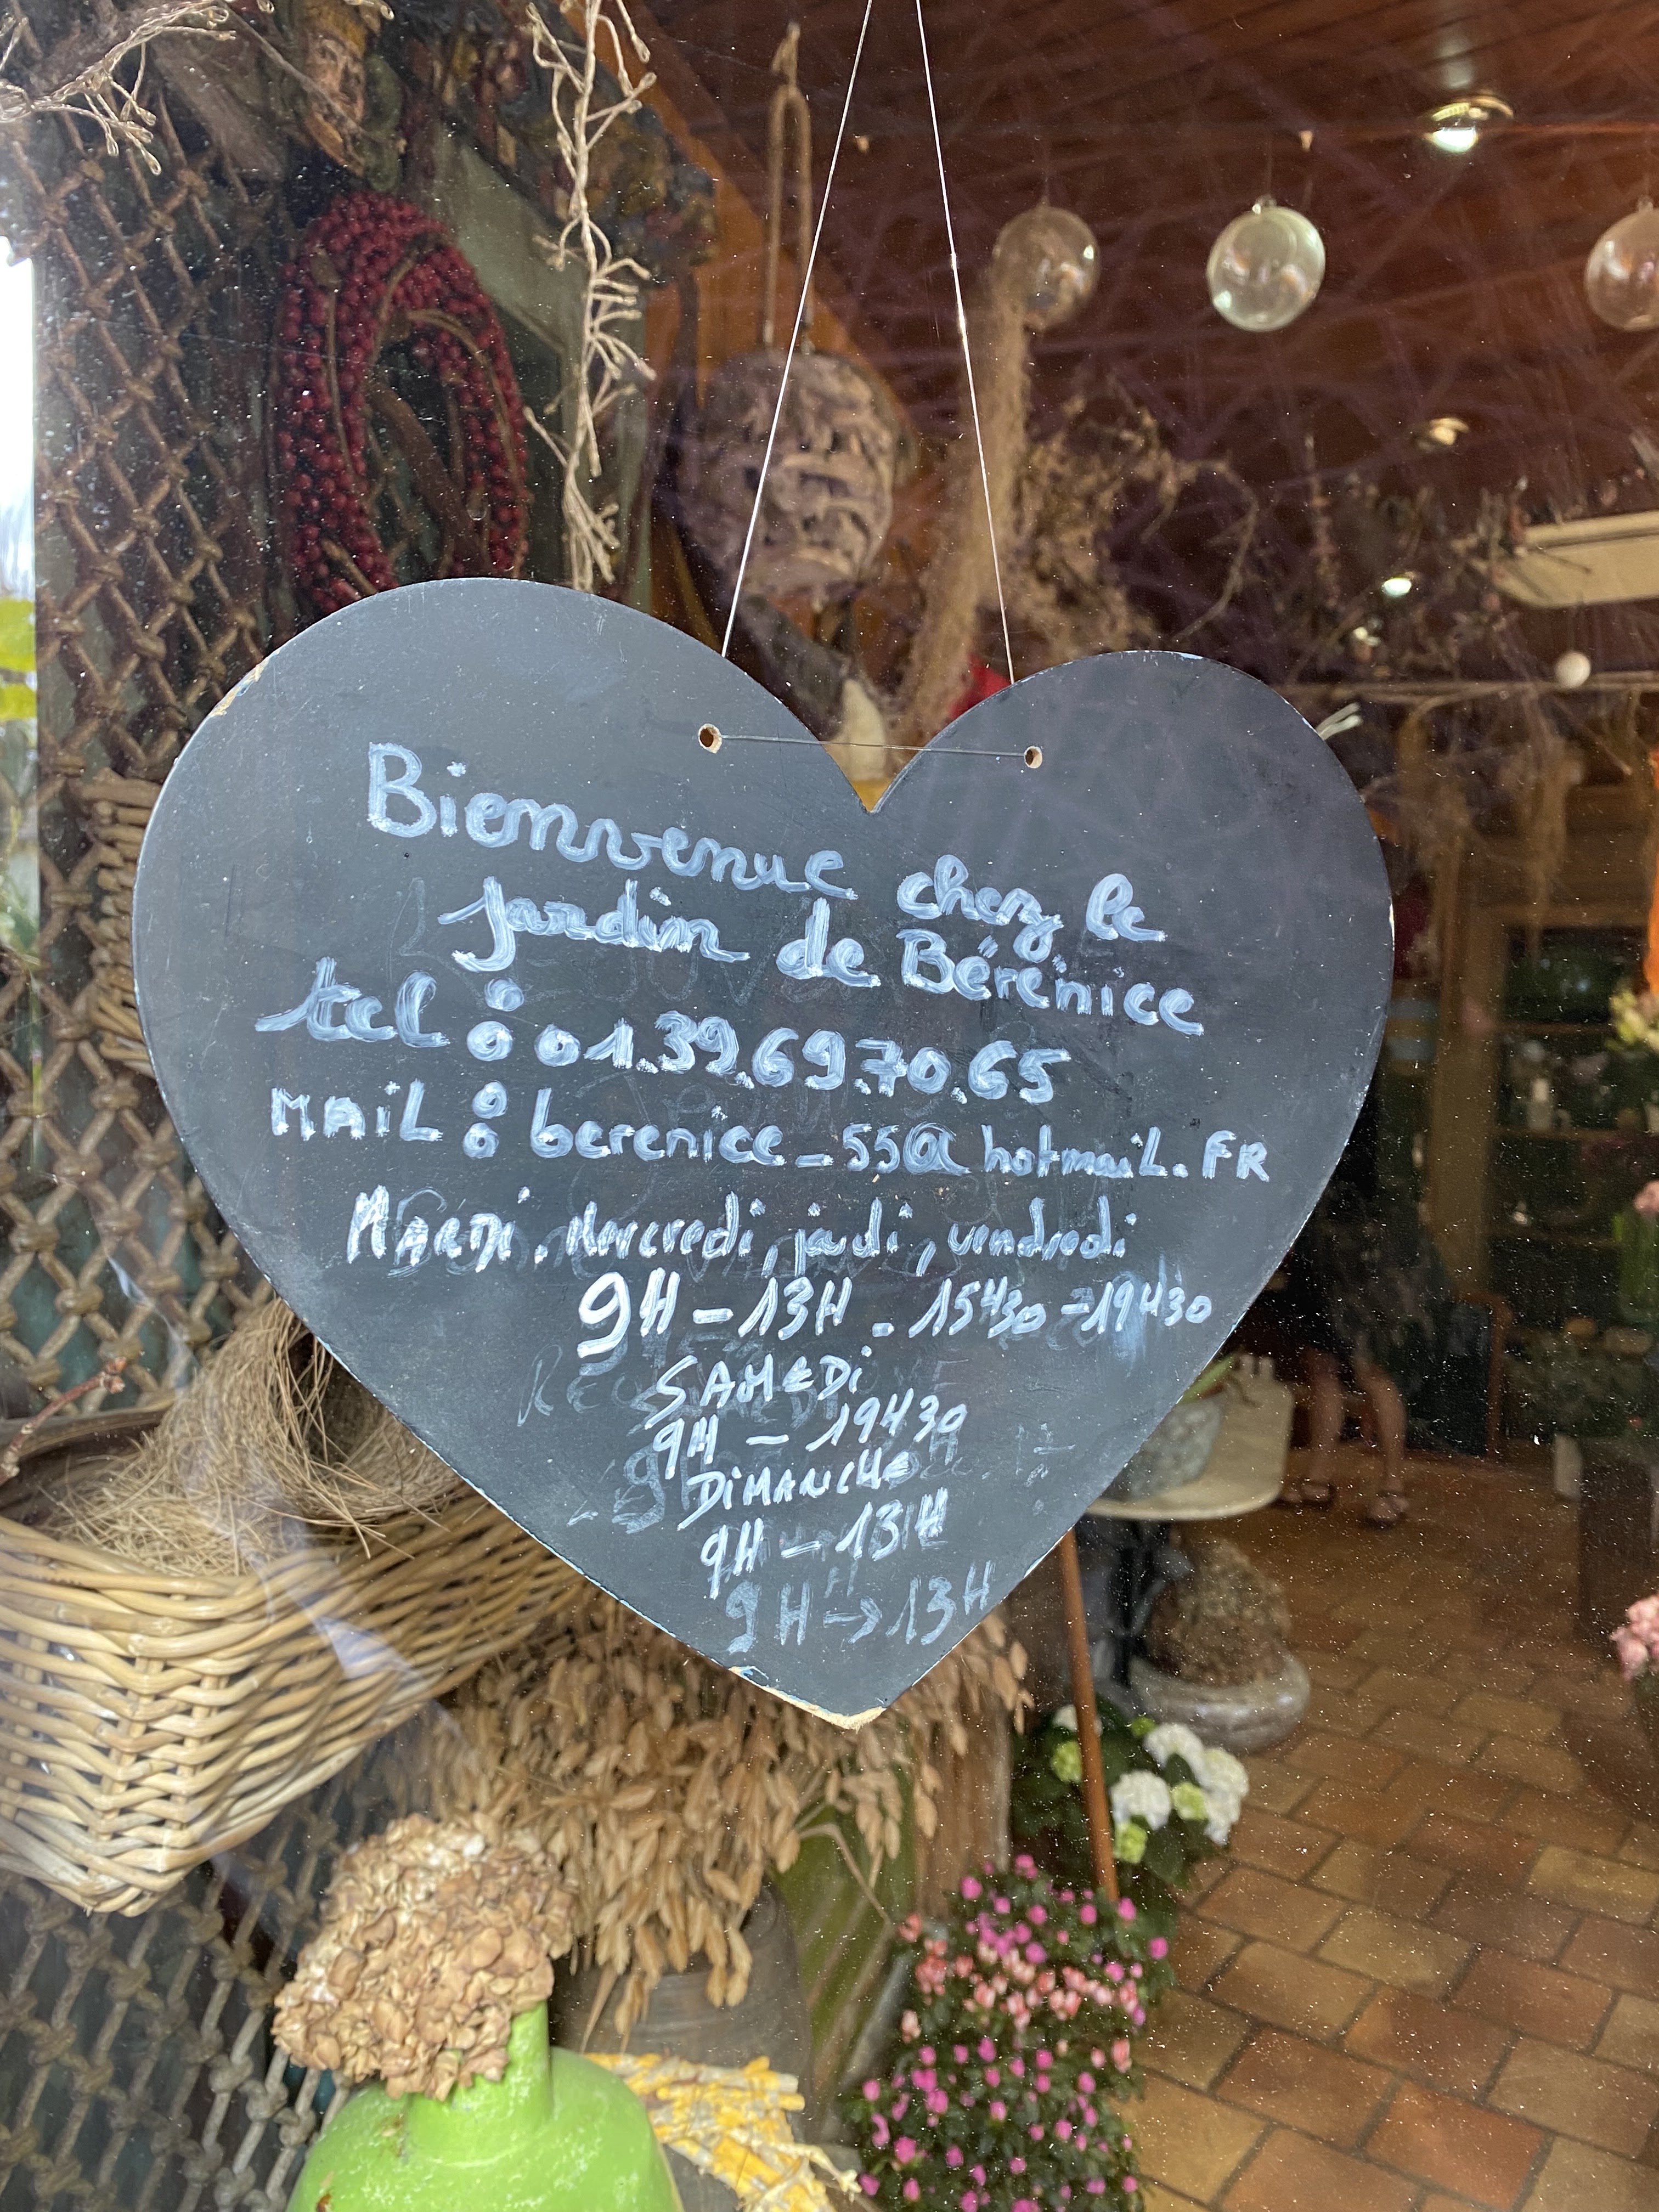 Bienvenue chez le
jardin de Bérénice
tel : 01.39.69.70.65
MAiL : berenice_55@hotmaiL.FR
MARDi, Mercredi, jeudi, vendredi
9H-13H. 15H30-19H30
SAMEDi
9H - 19H30
DiMANCHe
9H-13H
9H->13H